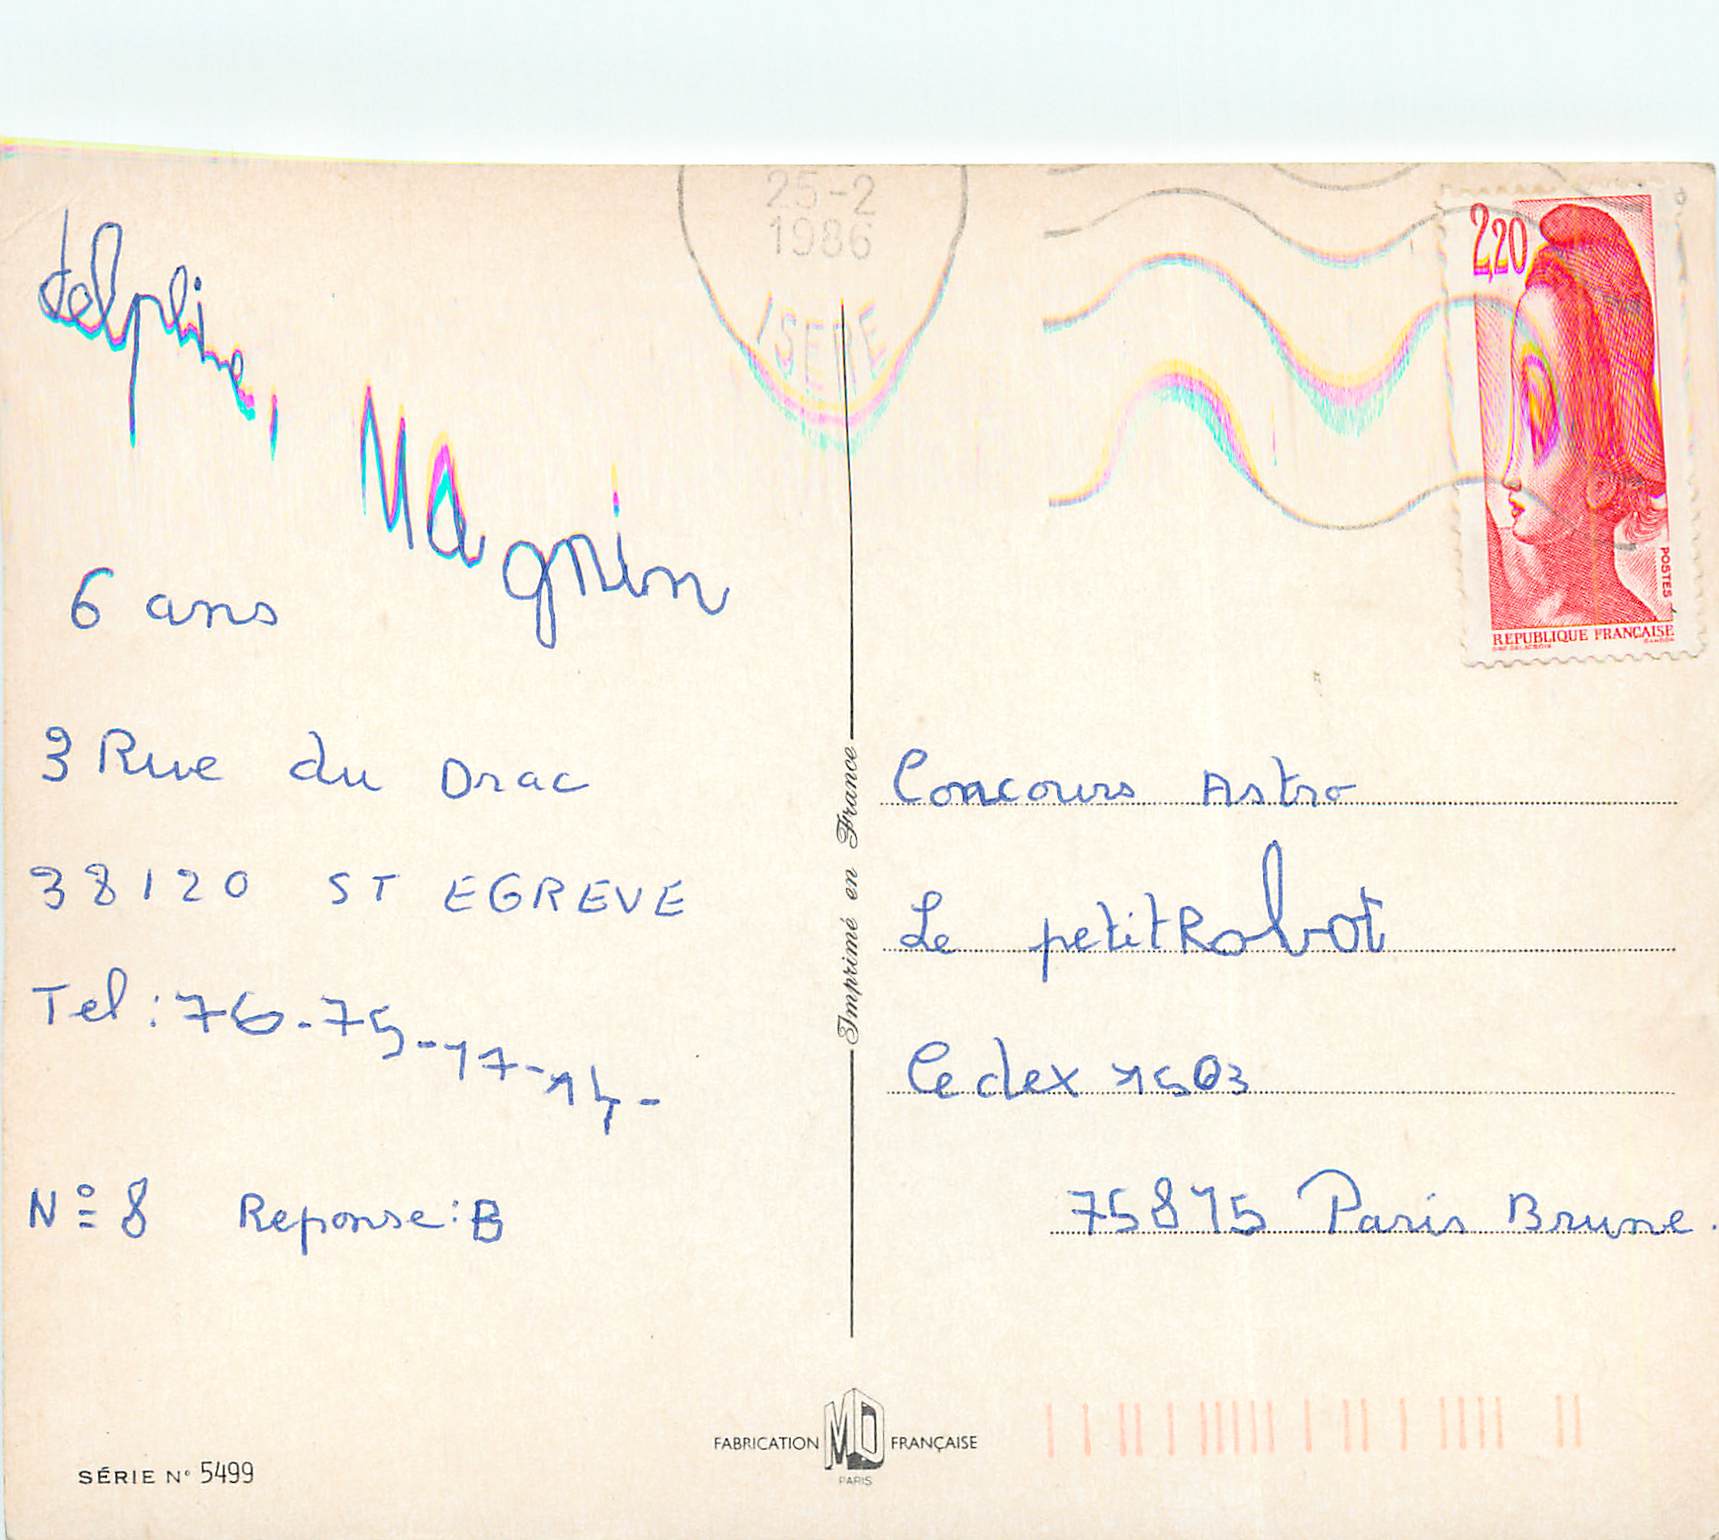 delphine, Magnin
6 ans
3 Rue du Drac
38120 ST EGREVE
Tel : 76-75-17-14-
N° 8 Reponse : B
25-2
1986
ISERE
2,20
POSTES
REPUBLIQUE FRANÇAISE
Imprimé en France
Concours Astro
Le petit Robot
Cedex 1503
75815 Paris Brune.
SÉRIE N° 5499
FABRICATION MD FRANÇAISE
PARIS